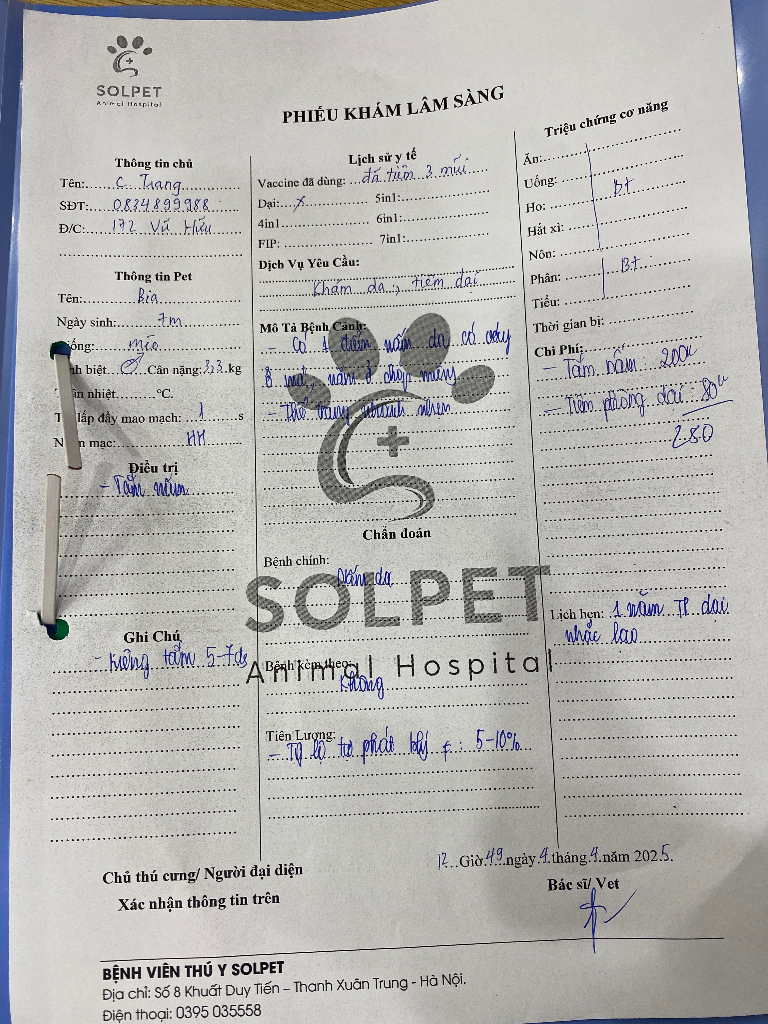 SOLPET
Animal Hospital
PHIẾU KHÁM LÂM SÀNG
Thông tin chủ
Tên: C Trang
SĐT: 0834899988
Đ/C: 172 Vũ Hữu
Thông tin Pet
Tên: Bia
Ngày sinh: 7m
ống: mèo
nh biệt ♂ Cân nặng: 3,3 kg
ân nhiệt °C.
T lấp đầy mao mạch: 1 s
N m mạc: HH
Điều trị
- Tắm nấm
Ghi Chú
- Kiêng tắm 5-7ds
Lịch sử y tế
Vaccine đã dùng: đã tiêm 3 mũi
Dại: x 5in1:
4in1 6in1:
FIP: 7in1:
Dịch Vụ Yêu Cầu:
Khám da, tiêm dại
Mô Tả Bệnh Cảnh:
- Có 1 điểm nấm da có vảy
ở mặt, nấm ở chóp miệng
- Thể trạng nhanh nhẹn
Chẩn đoán
Bệnh chính:
Nấm da
SOLPET
Animal Hospital
Bệnh kèm theo:
Không
Tiên Lượng:
- Tỷ lệ tái phát 5-10%
Triệu chứng cơ năng
Ăn:
Uống:
Ho: Bt
Hắt xì:
Nôn:
Phân: Bt
Tiểu:
Thời gian bị:
Chi Phí:
- Tắm nấm: 200k
- Tiêm phòng dại: 80k
280
Lịch hẹn: 1 năm TP dại
nhắc lại
12 Giờ 49 ngày 4 tháng 4 năm 2025.
Chủ thú cưng/ Người đại diện
Xác nhận thông tin trên
Bác sĩ/ Vet
BỆNH VIỆN THÚ Y SOLPET
Địa chỉ: Số 8 Khuất Duy Tiến – Thanh Xuân Trung - Hà Nội.
Điện thoại: 0395 035558